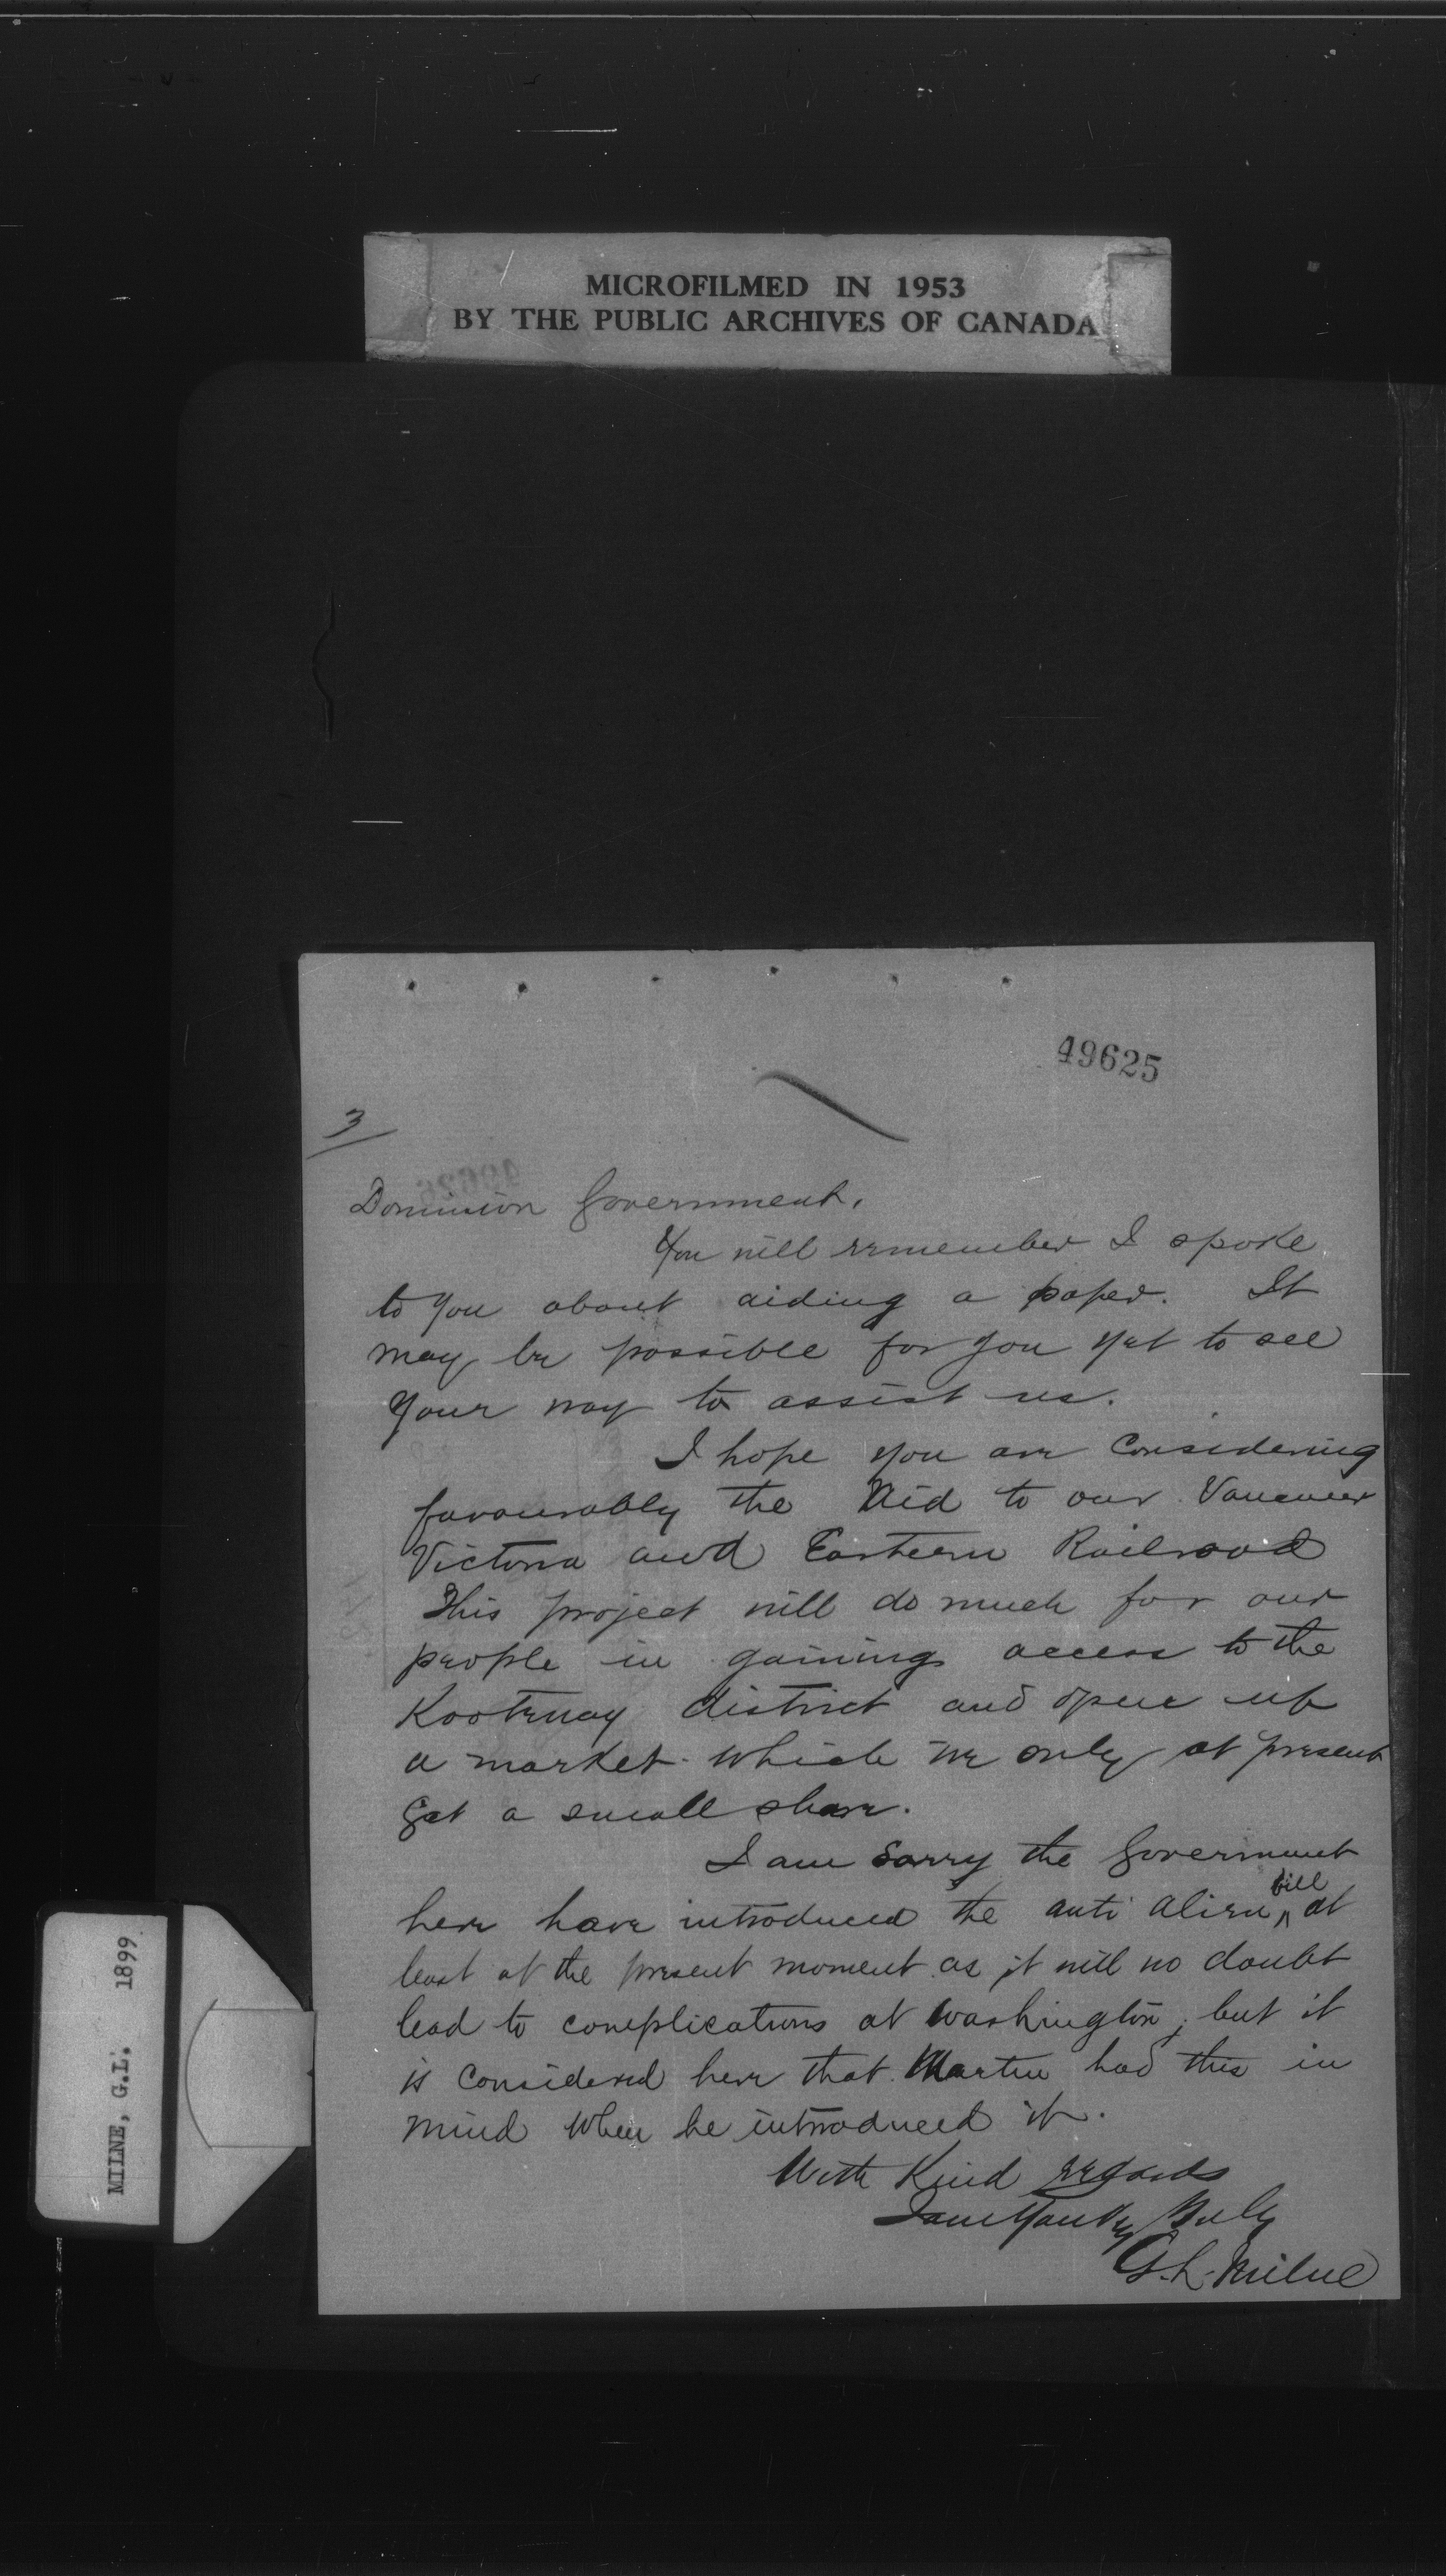 MICROFILMED IN 1953
BY THE PUBLIC ARCHIVES OF CANADA
49625
3
Dominion Government.
You will remember I spoke
to you about aiding a paper. It
may be possible for you yet to see
your way to assist us.
I hope you are considering
favourably the Aid to our Vancouver
Victoria and Eastern Railroad
This project will do much for our
people in gaining access to the
Kootenay district and open up
a market which we only at present
get a small share.
I am sorry the Government
here have introduced the anti alien bill at
least at the present moment as it will no doubt
lead to complications at Washington, but it
is considered here that Martin had this in
mind when he introduced it.
With Kind regards
I am Yours Truly
G.L. Milne
MILNE, G.L. 1899